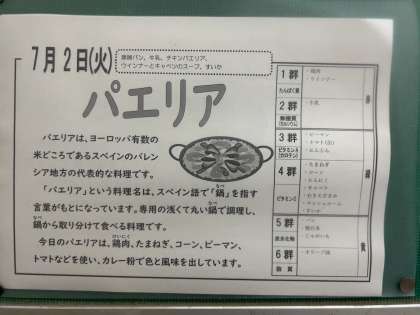 7月2日(火)
黒糖パン、牛乳、チキンパエリア、
ウインナーとキャベツのスープ、すいか
パエリア
パエリアは、ヨーロッパ有数の
米どころであるスペインのバレン
シア地方の代表的な料理です。
「パエリア」という料理名は、スペイン語で「鍋」を指す
言葉がもとになっています。専用の浅くて丸い鍋で調理し、
鍋から取り分けて食べる料理です。
今日のパエリアは、鶏肉、たまねぎ、コーン、ピーマン、
トマトなどを使い、カレー粉で色と風味を出しています。
1群
たんぱく質
・鶏肉
・ウインナー
2群
無機質
(カルシウム)
・牛乳
赤
3群
ビタミンA
(カロテン)
・ピーマン
・トマト(缶)
・にんじん
4群
ビタミンC
・たまねぎ
・コーン
・にんにく
・キャベツ
・マッシュルーム
・すいか
緑
5群
炭水化物
・パン
・じゃがいも
6群
脂質
・オリーブ油
黄